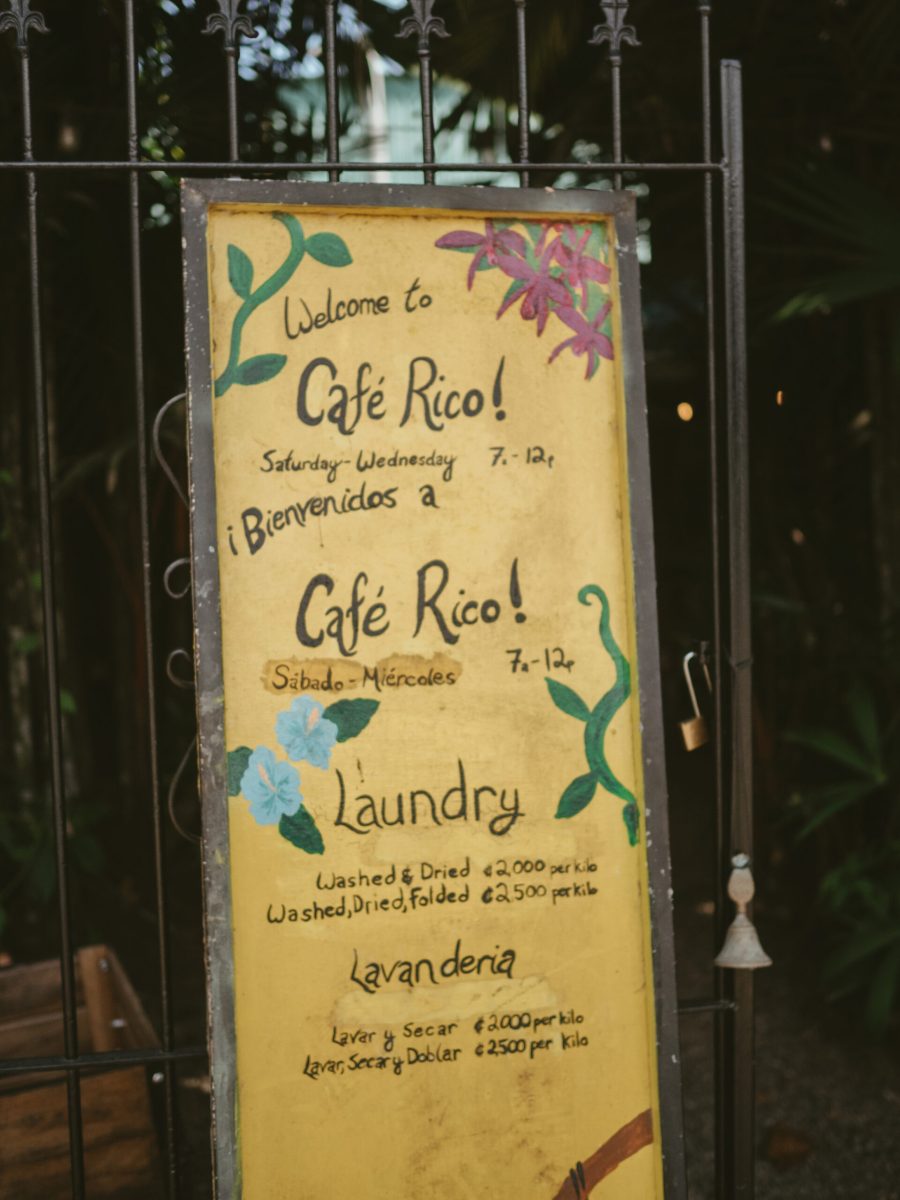 Welcome to
Café Rico!
Saturday - Wednesday 7a - 12p
¡Bienvenidos a
Café Rico!
Sábado - Miércoles 7a - 12p
Laundry
Washed & Dried ¢2,000 per kilo
Washed, Dried, Folded ¢2500 per kilo
Lavanderia
Lavar y Secar ¢2000 per kilo
Lavar, Secar y Doblar ¢2,500 per kilo